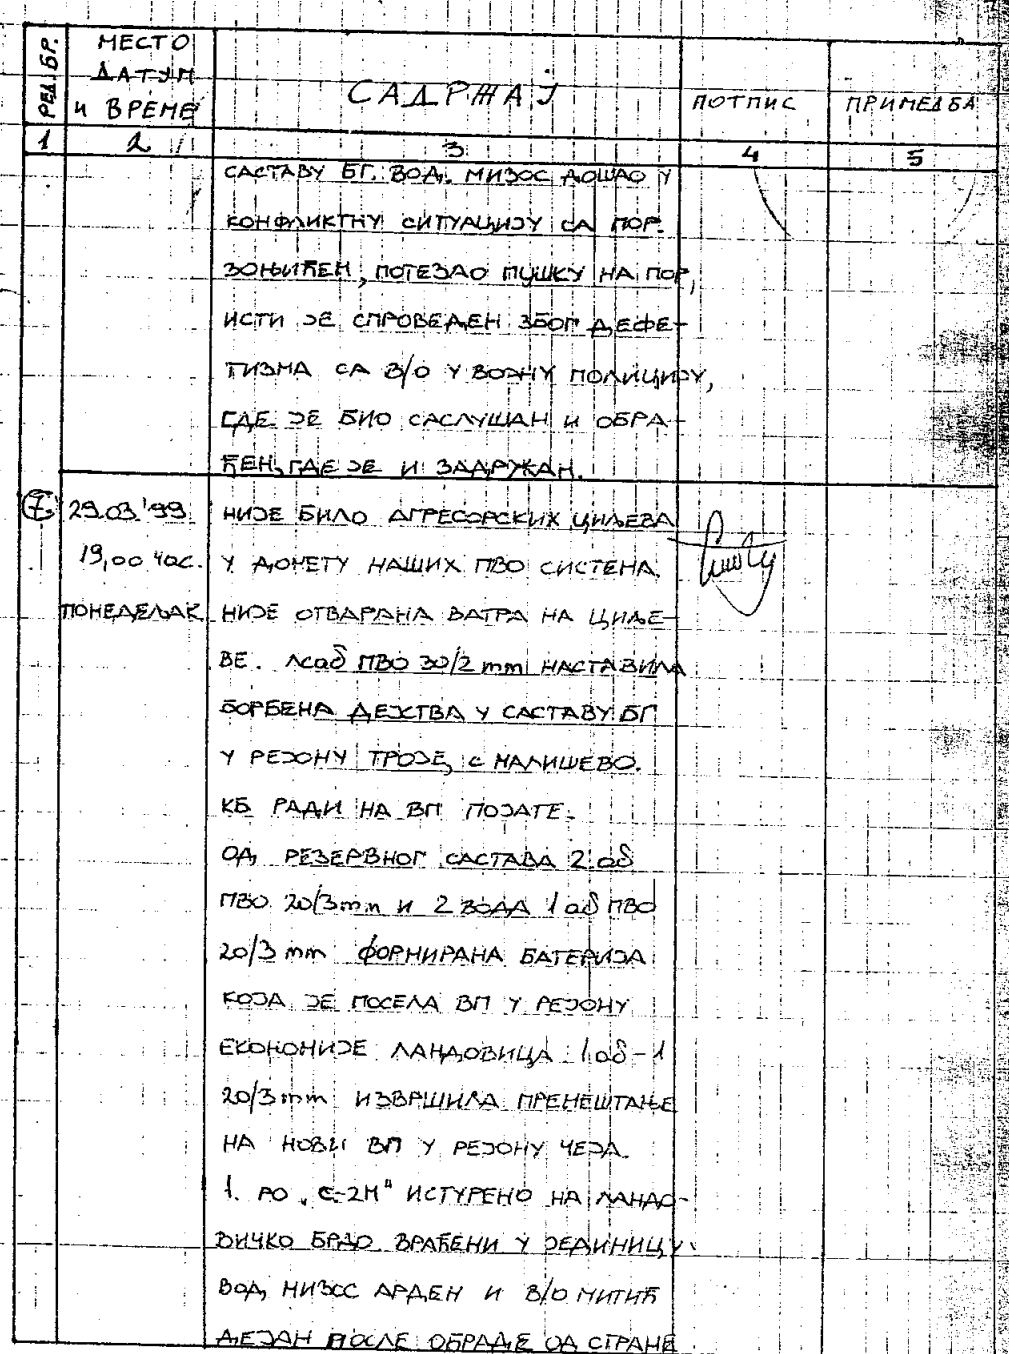 РЕД. БР.
МЕСТО
ДАТУМ
И ВРЕМЕ
САДРЖАЈ
ПОТПИС
ПРИМЕДБА
1
2
3
4
5
САСТАВУ БГ. ВОД. МИЗОС ДОШАО У
КОНФЛИКТНУ СИТУАЦИЈУ СА ПОР.
ЗОЊИЋЕМ, ПОТЕЗАО ПУШКУ НА ПОР,
ИСТИ ЈЕ СПРОВЕДЕН ЗБОГ ДЕФЕ-
ТИЗМА СА В/О У ВОЈНУ ПОЛИЦИЈУ,
ГДЕ ЈЕ БИО САСЛУШАН И ОБРА-
ЂЕН, ГДЕ ЈЕ И ЗАДРЖАН.
7.
29.03.'99.
19,00 час.
ПОНЕДЕЉАК
НИЈЕ БИЛО АГРЕСОРСКИХ ЦИЉЕВА
У ДОМЕТУ НАШИХ ПВО СИСТЕМА.
НИЈЕ ОТВАРАНА ВАТРА НА ЦИЉЕ-
ВЕ. лсаб ПВО 30/2 mm НАСТАВИЛА
БОРБЕНА ДЕЈСТВА У САСТАВУ БГ
У РЕЈОНУ ТРОЈЕ, с МАЛИШЕВО.
КБ РАДИ НА ВП ПОЈАТЕ.
ОД РЕЗЕРВНОГ САСТАВА 2. аб
ПВО 20/3 mm И 2 ВОДА 1 аб ПВО
20/3 mm ФОРМИРАНА БАТЕРИЈА
КОЈА ЈЕ ПОСЕЛА ВП У РЕЈОНУ
ЕКОНОМИЈЕ ЛАНДОВИЦА. 1.аб-1
20/3 mm ИЗВРШИЛА ПРЕМЕШТАЊЕ
НА НОВИ ВП У РЕЈОНУ ЧЕЈА.
1. РО „С-2М" ИСТУРЕНО НА ЛАНДО-
ВИЧКО БРДО ВРАЋЕНИ У ЈЕДИНИЦУ.
ВОД, МИЗОС АРДЕН И В/О МИТИЋ
ДЕЈАН ПОСЛЕ ОБРАДЕ ОД СТРАНЕ